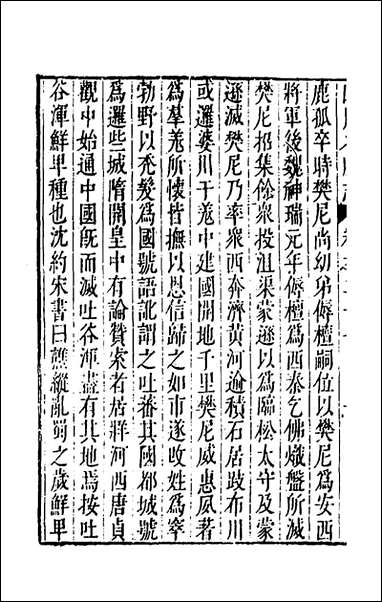 鹿孤卒時樊尼尚幼弟傉檀嗣位以樊尼爲安西
將軍後魏神瑞元年傉檀爲西秦乞佛熾盤所滅
樊尼招集餘衆投沮渠蒙遜以爲臨松太守及蒙
遜滅樊尼乃率衆西奔濟黃河逾積石居跂布川
或邏婆川于羌中建國開地千里樊尼威惠夙著
爲羣羌所懷皆撫以恩信歸之如市遂改姓爲窣
勃野以禿髮爲國號語訛謂之吐蕃其國都城號
爲邏些城隋開皇中有論贊索者居牂河西唐貞
觀中始通中國旣而滅吐谷渾盡有其地焉按吐
谷渾鮮卑種也沈約宋書曰譙縱亂蜀之歲鮮卑